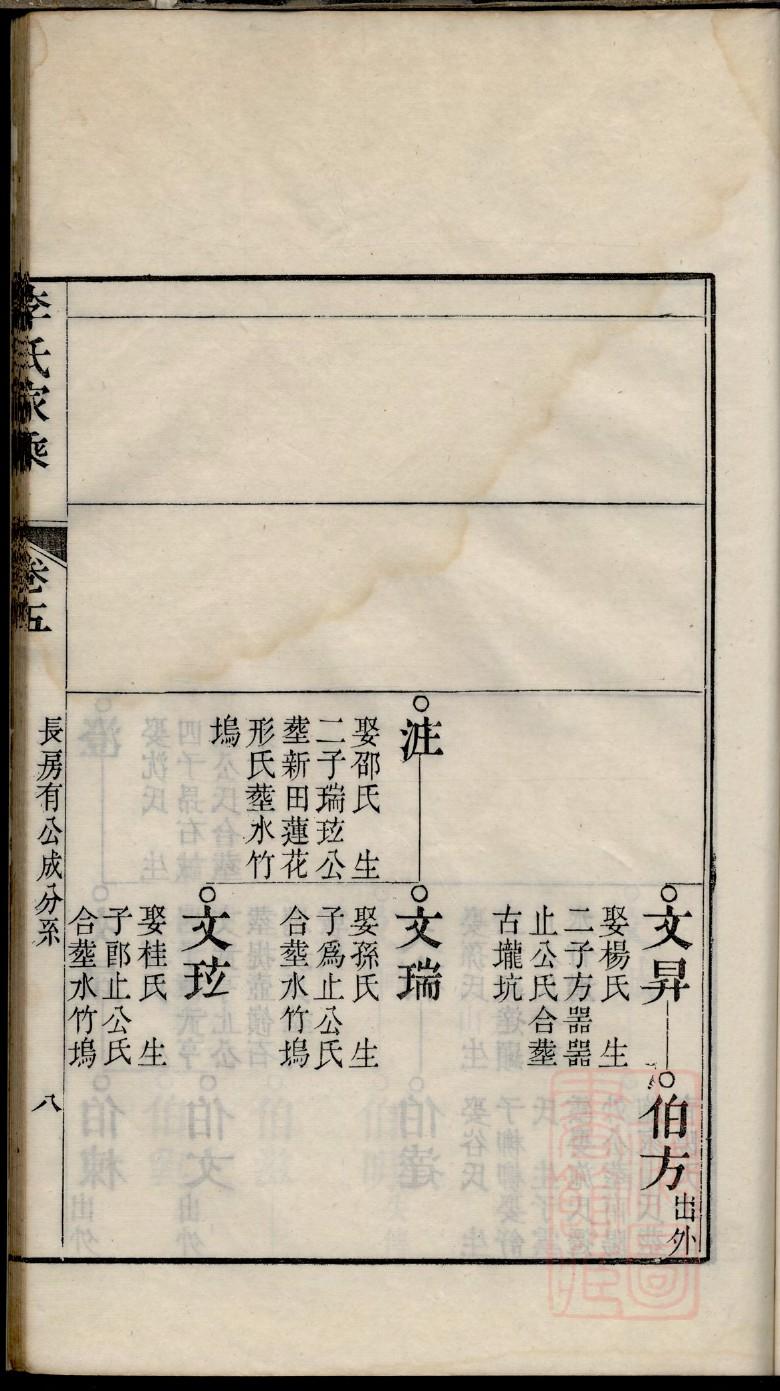 文昇
娶楊氏 生
二子方器器
止公氏合塟
古壠坑
伯方
出外
注
娶邵氏 生
二子瑞玹公
塟新田蓮花
形氏塟水竹
塢
文瑞
娶孫氏 生
子為止公氏
合塟水竹塢
文玹
娶桂氏 生
子郎止公氏
合塟水竹塢
李氏家乘
卷五
長房有公成分系
八